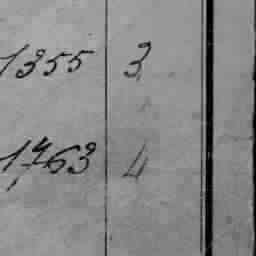 1355 3
1763 4